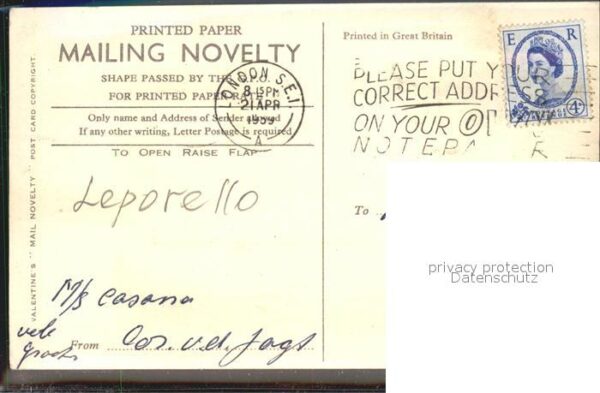 PRINTED PAPER
MAILING NOVELTY
SHAPE PASSED BY THE
FOR PRINTED PAPER RATE
Only name and Address of Sender allowed
If any other writing, Letter Postage is required
TO OPEN RAISE FLAP
Leporello
M/S Casana
vele
groeten
From Cor. v.d. Jagt
VALENTINE'S " MAIL NOVELTY " POST CARD COPYRIGHT
LONDON S.E.1
8 15PM
21 APR
1959
A
Printed in Great Britain
PLEASE PUT YOUR
CORRECT ADDRESS
ON YOUR
NOTEPA
E R
4D
To
privacy protection
Datenschutz